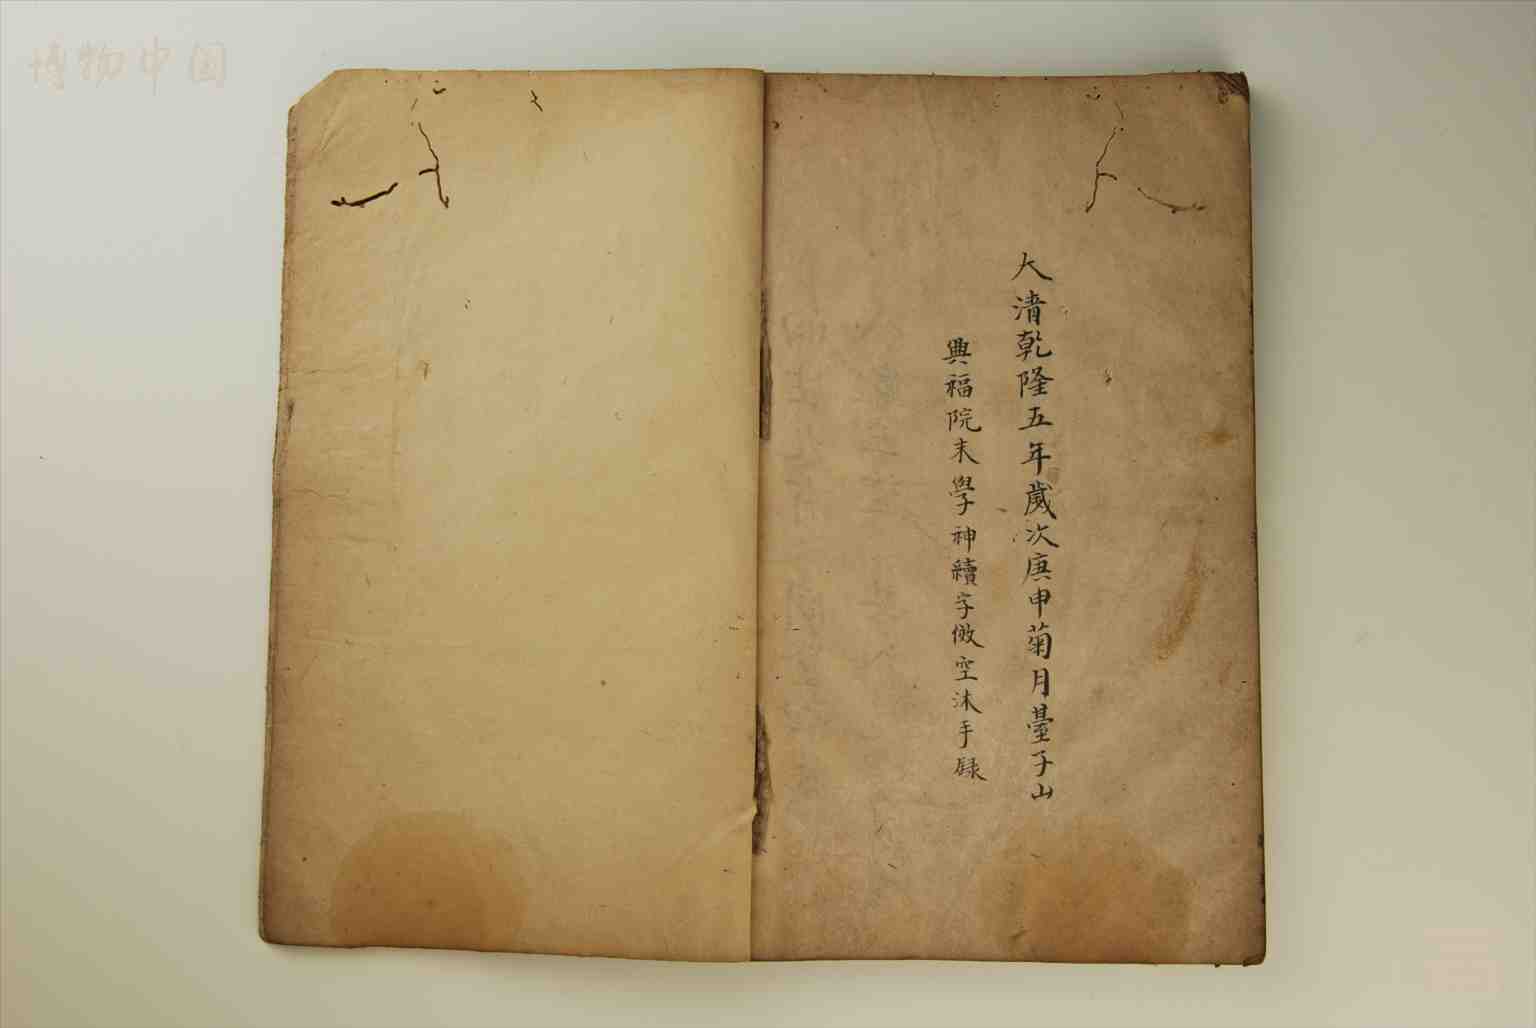 博物中国
大清乾隆五年歲次庚申菊月臺子山
興福院末學神續字倣空沐手録